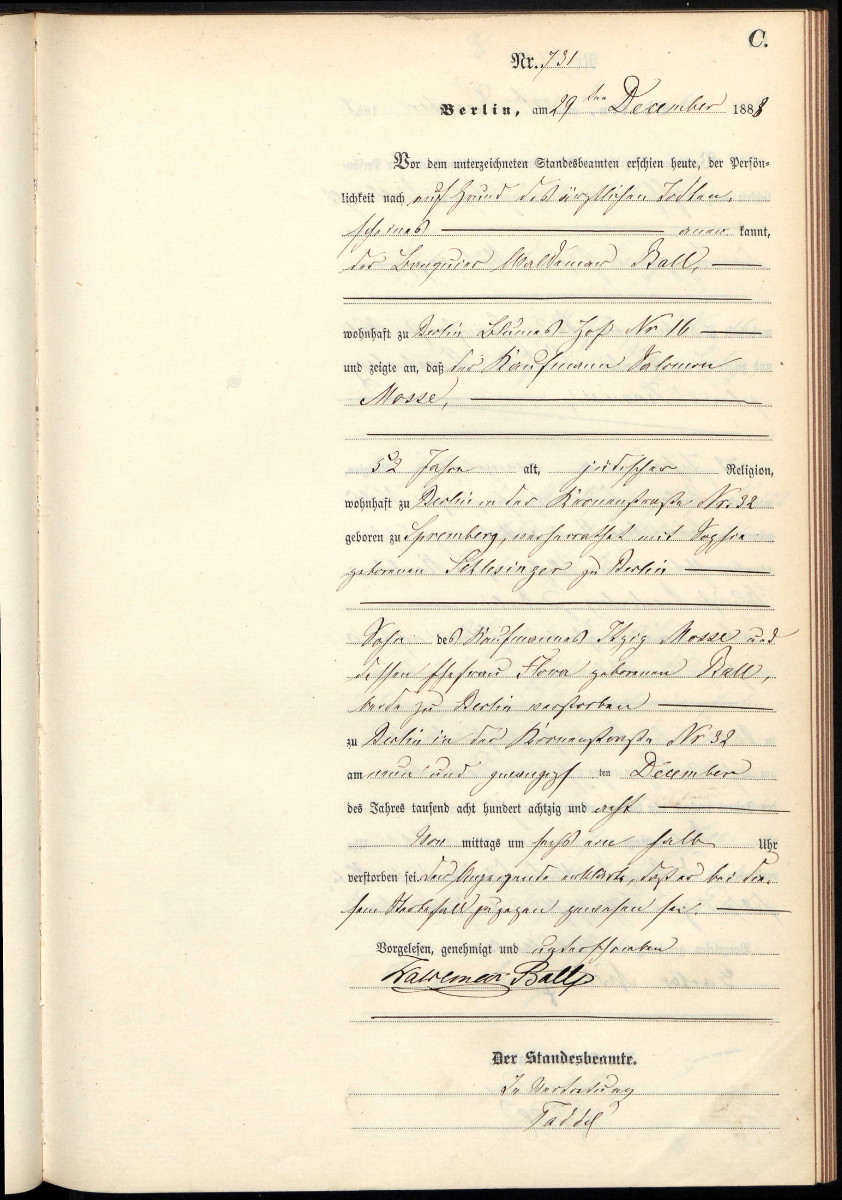 C.
Nr. 731
Berlin, am 29 ten December 1888
Vor dem unterzeichneten Standesbeamten erschien heute, der Persön-
lichkeit nach auf Grund des ärztlichen Todten-
scheines kannt,
der Banquier Waldemar Ball,
wohnhaft zu Berlin Blumes-Hof Nr 16
und zeigte an, daß der Kaufmann Salomon
Mosse,
52 Jahre alt, jüdischer Religion,
wohnhaft zu Berlin in der Kronenstraße Nr. 32
geboren zu Spremberg, verheirathet mit Sophie
geborenen Schlesinger zu Berlin
Sohn des Kaufmannes Itzig Mosse und
dessen Ehefrau Flora geborenen Ball,
beide zu Berlin verstorben
zu Berlin in der Kronenstraße Nr 32
am neun und zwanzigst ten December
des Jahres tausend acht hundert achtzig und acht
Vor mittags um sechs ein halb Uhr
verstorben sei. der Anzeigende erklärte, daß er bei die-
sem Sterbefall zugegen gewesen sei.
Vorgelesen, genehmigt und unterschrieben
Waldemar Ball
Der Standesbeamte.
In Vertretung